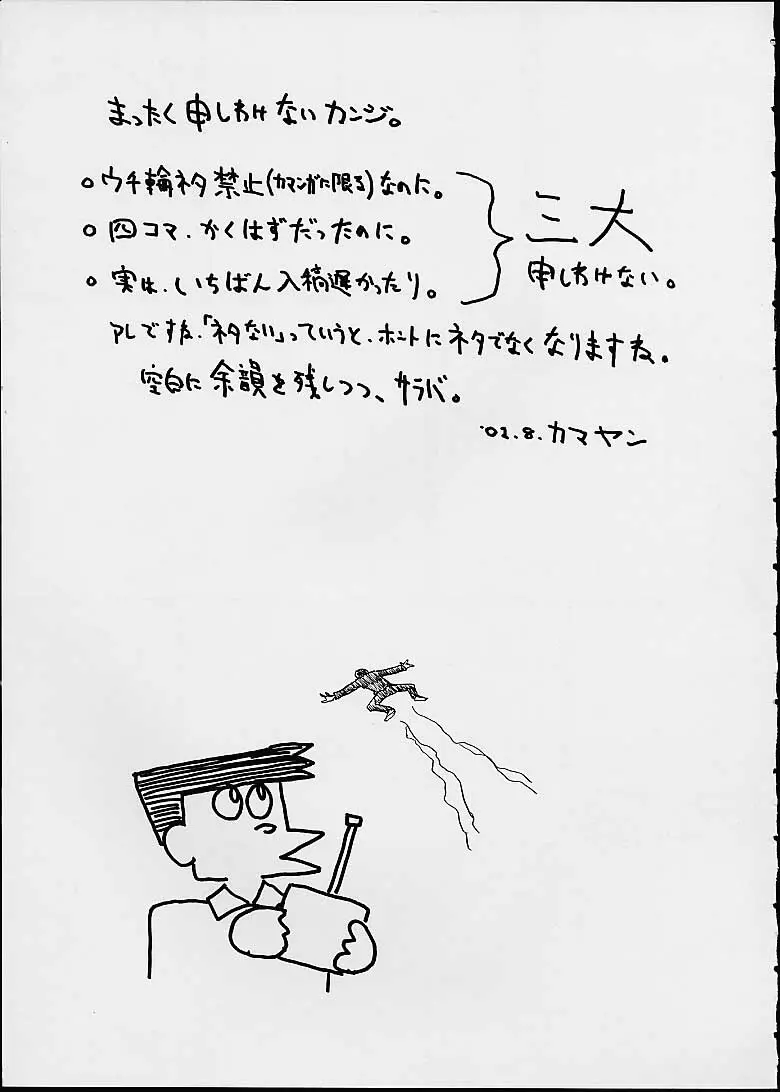 まったく申しわけないカンジ。
○ウチ輪ネタ禁止(カマンガに限る)なのに。
○四コマ、かくはずだったのに。
○実は、いちばん入稿遅かったり。
三大
申しわけない。
アレですね、「ネタない」っていうと、ホントにネタでなくなりますね。
空白に余韻を残しつつ、サラバ。
'02.8.カマヤン